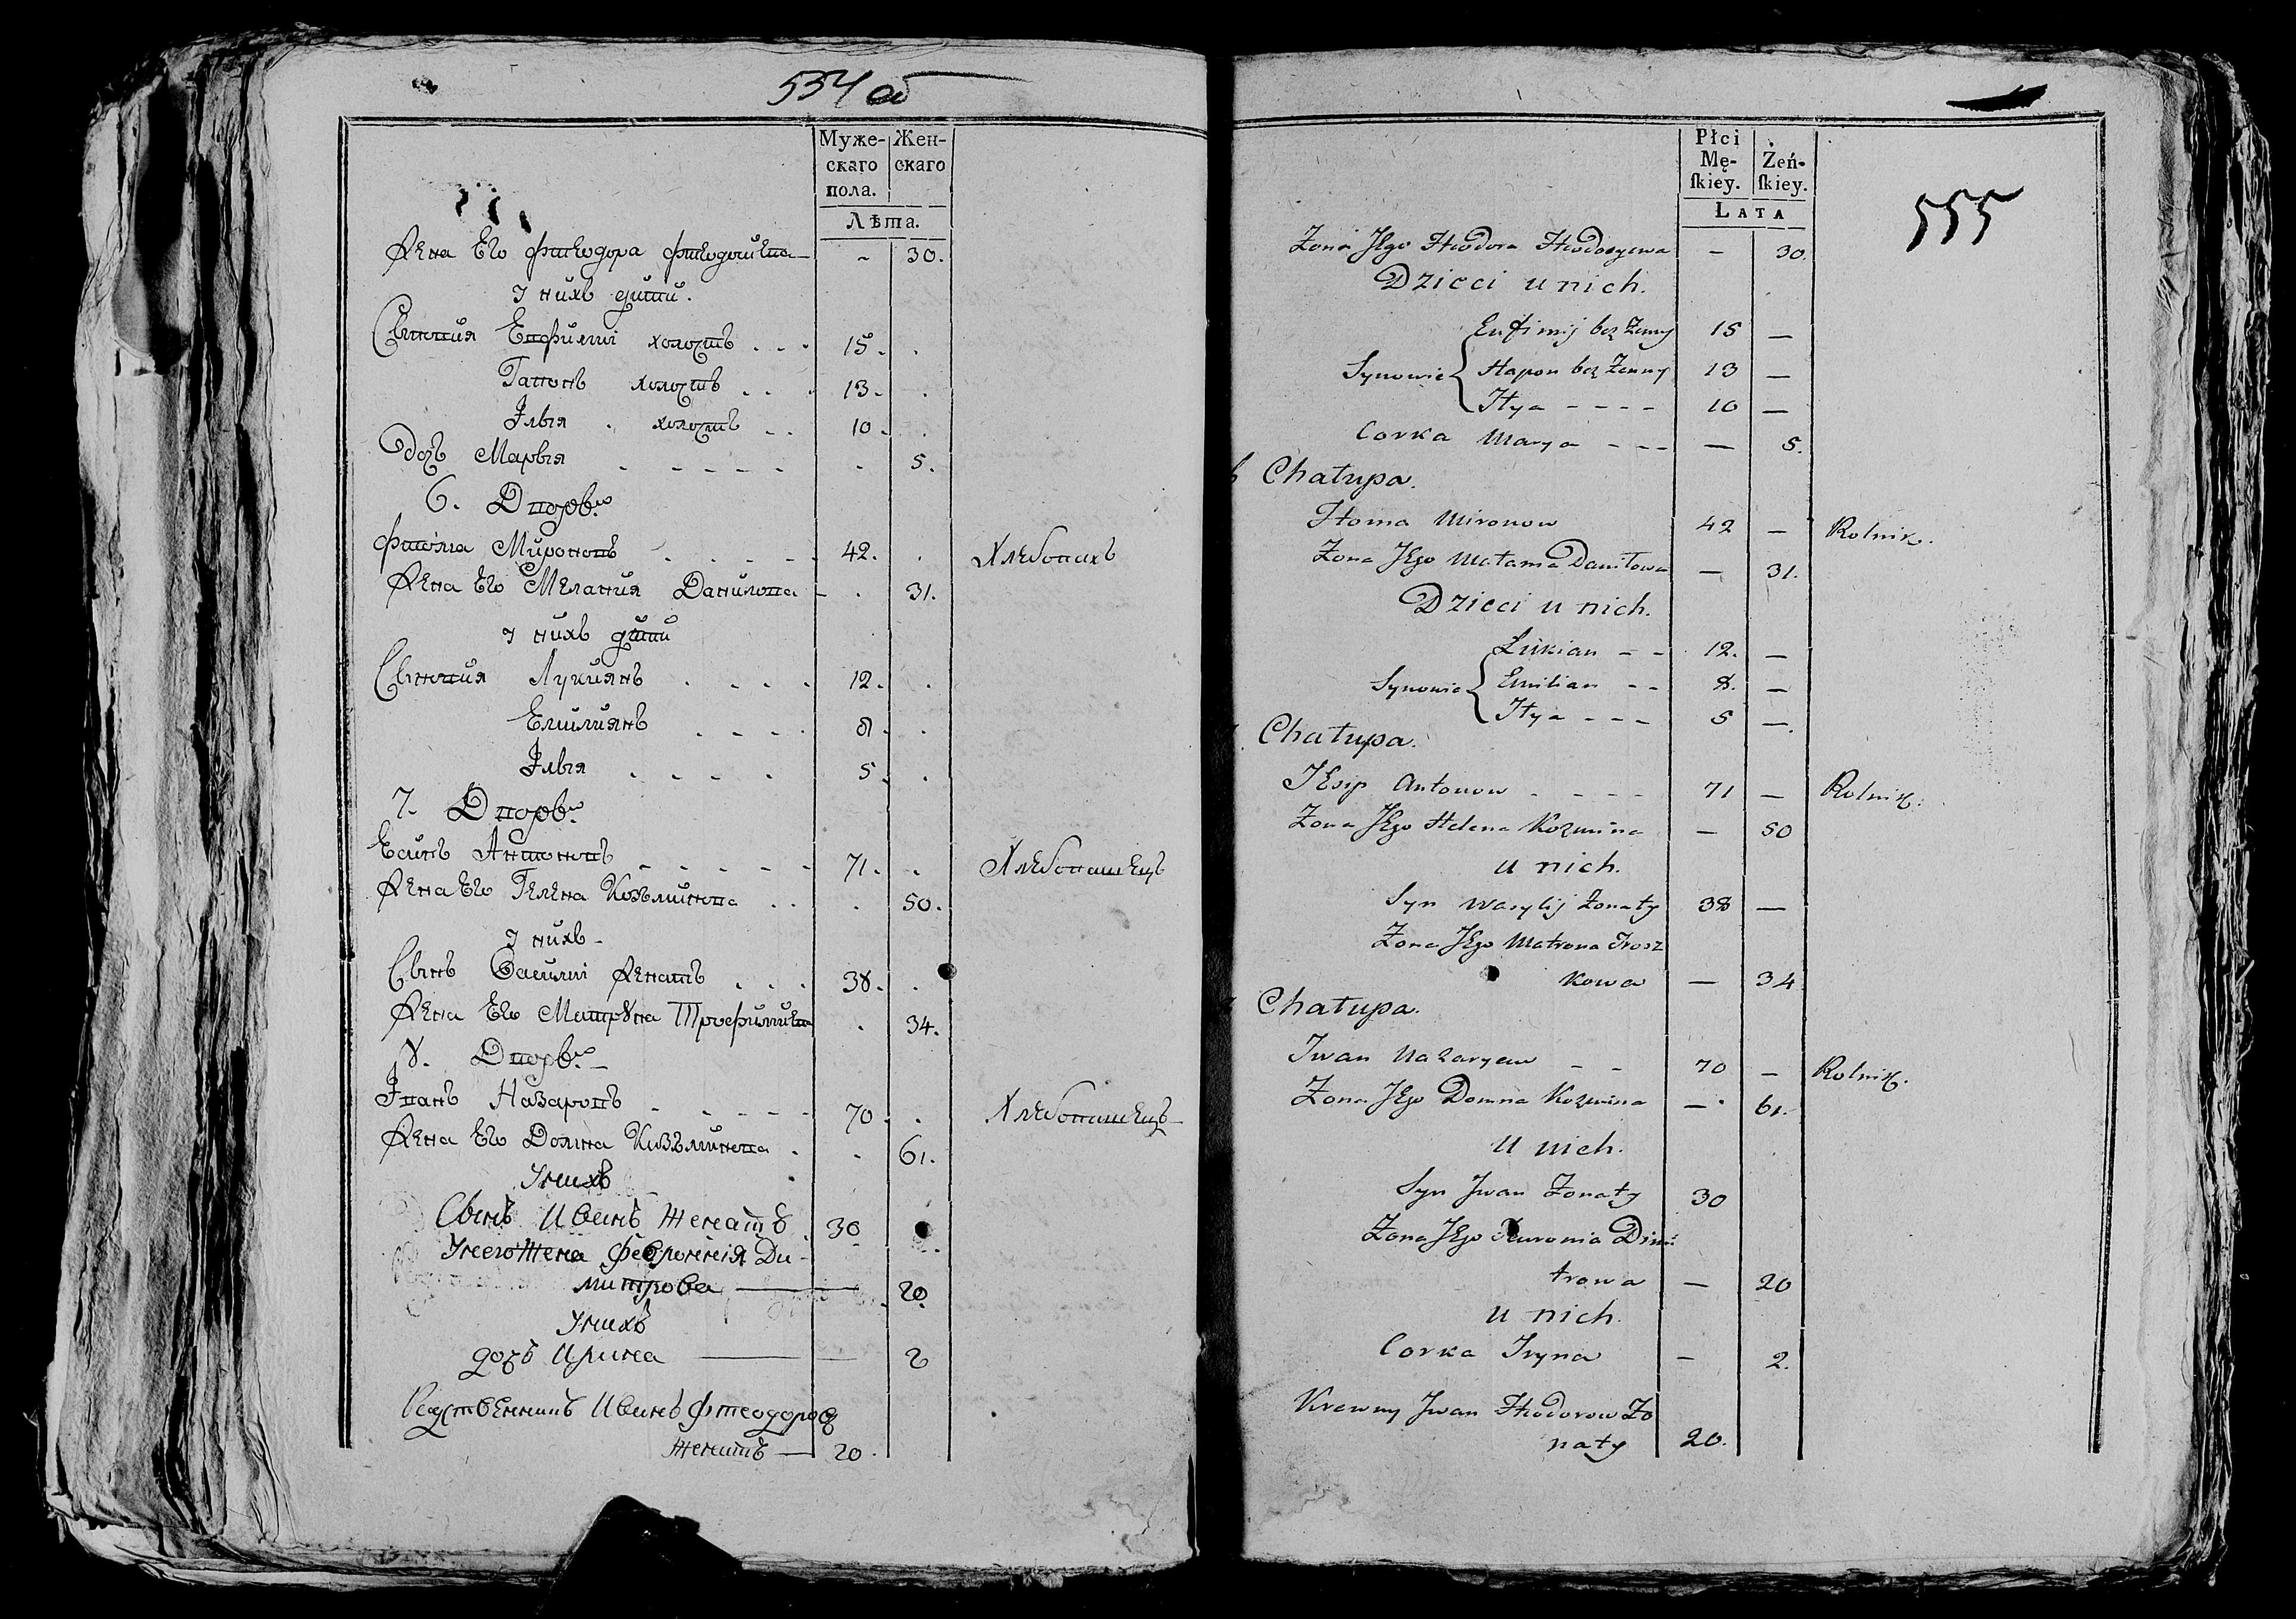 554 об
Муже-
скаго
пола.
Жен-
скаго
Лѣта.
Жена Его Фтеодора Фтеодошева - 30.
У нихъ дити.
Сыновия Евфимiй холостъ . . . 15.
Гапонъ холостъ . . . 13.
Iлья . холостъ . . 10.
Дочь Марья . - - - - - 5.
6. Дворъ.
Фтома Мироновъ . . . . 42. . Хлебопахъ
Жена Его Мелания Данилова - . 31.
У нихъ дити
Сыновия Лукиянъ . . . . 12. .
Емилиянъ . . . . 8. .
Iлья . . . . 5. .
7. Дворъ.
Есипъ Антоновъ - - - - - 71. . Хлебопашецъ
Жена Его Гелена Козьминова . . . 50.
У нихъ -
Сынъ Василiй Женатъ . . . 38. .
Жена Его Матрона Трофимова . 34.
8. Дворъ. -
Iванъ Назаровъ . - - - - 70. . Хлебопашецъ
Жена Его Домна Козьминова . - 61.
У нихъ
Сынъ Иванъ Женатъ 30
У него Жена Февронния Ди-
митрова 20.
У нихъ
дочь Ирина 2
Родственникъ Иванъ Фтеодоровъ
Женатъ — 20.
Płci
Mę-
ſkiey.
Żeń-
ſkiey.
LATA
555
Zona JEgo Hteodora Hteodozyewa — 30.
Dzieci u nich.
Eufimij bez Zenny 15 —
Synowie Hapon bez Zenny 13 —
Ilya - - - - 10 —
Corka Marya - - - — 5.
6 Chałupa.
Htoma Mironow 42 — Rolnik.
Zona JEgo Małania Daniłowa — 31.
Dzieci u nich.
Łukian - - 12. —
Synowie Emilian - - 8. —
Ilya - - - 5 —.
Chałupa.
JEsip Antonow - - - - 71 — Rolnik.
Zona JEgo Helena Kozmina — 50
u nich.
Syn Wasylij Zonaty 38 —
Zona JEgo Matrona Trosz
kowa — 34
Chałupa.
Jwan Nazaryew - - 70 — Rolnik.
Zona JEgo Domna Kozmina — 61.
U nich.
Syn Jwan Zonaty 30
Zona JEgo Fewronia Dimi
trowa — 20
u nich.
Corka Iryna - 2.
Krewny Jwan Hteodorow Zo
naty 20.